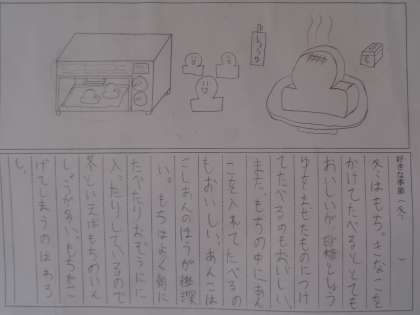 しょうゆ
好きな季節(冬)
冬はもち。きなこを
かけてたべるととても
おいしいが、砂糖としょう
ゆをまぜたものにつけ
てたべるのもおいしい。
また、もちの中にあん
こを入れてたべるの
もおいしい。あんこは
こしあんのほうが趣深
い。もちはよく朝に
たべたりおぞうにに
入ったりしているので
冬といえばもちのいん
しょうが多い。もちをこ
げてしまうのはわろ
し。